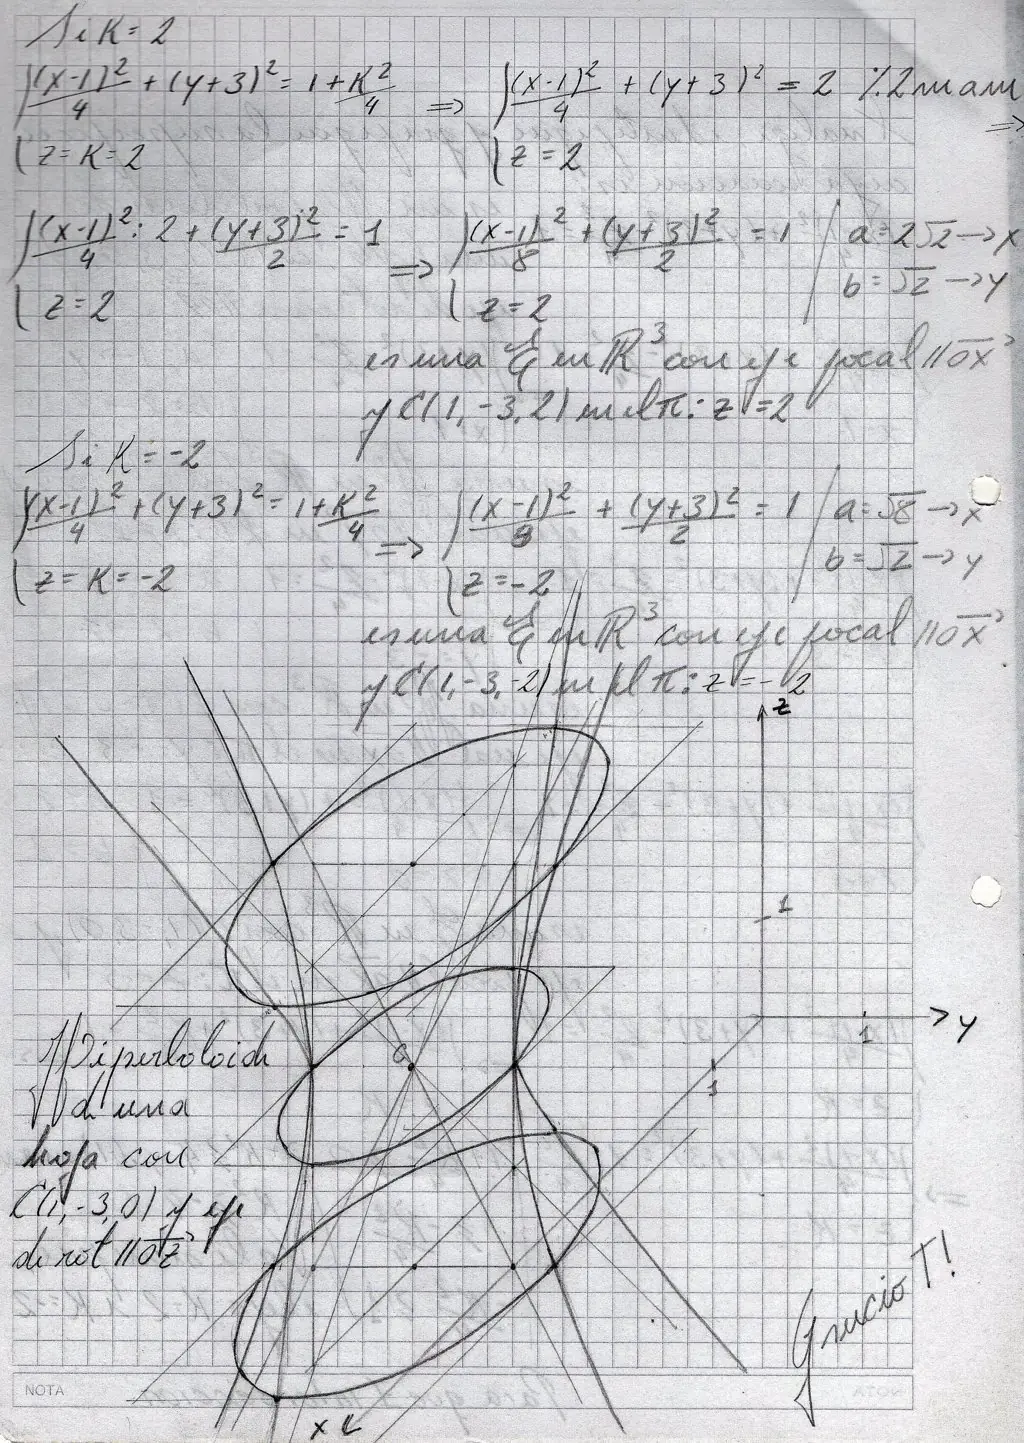 Si K = 2
(x-1)²/4 + (y+3)² = 1 + K²/4 => (x-1)²/4 + (y+3)² = 2 =>
z = K = 2 z = 2
(x-1)²/4 : 2 + (y+3)²/2 = 1 => (x-1)²/8 + (y+3)²/2 = 1 / a = 2√2 → x
z = 2 z = 2 b = √2 → y
es una en ℝ³ con eje focal || 0x
y C(1, -3, 2) en el π: z = 2
Si K = -2
(x-1)²/4 + (y+3)² = 1 + K²/4 => (x-1)²/8 + (y+3)²/2 = 1 / a = √8 → x
z = K = -2 z = -2 b = √2 → y
es una en ℝ³ con eje focal || 0x
y C(1, -3, -2) en el π: z = -2
z
1
y
1
1
C
Hiperboloide
d una
hoja con
C(1, -3, 0) y eje
de rot || 0z
x
NOTA